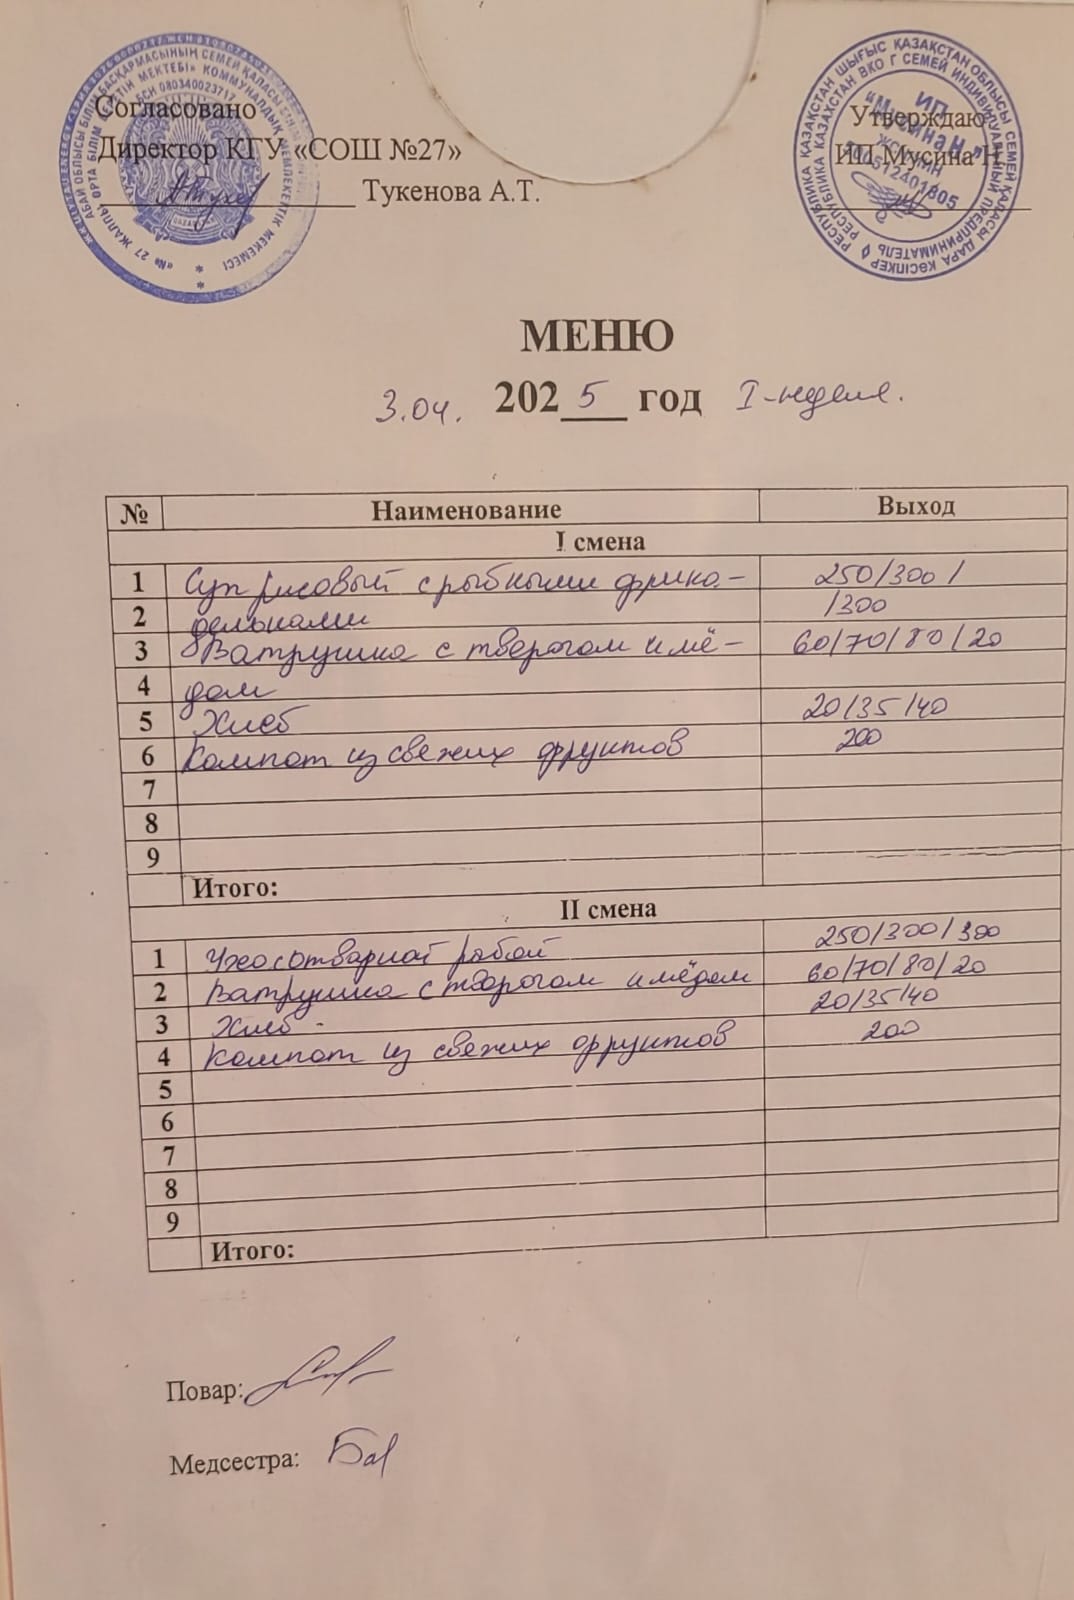 Согласовано
Директор КГУ «СОШ №27»
Тукенова А.Т.
Утверждаю
ИП Мусина Н
ИП
"Мусина Н."
МЕНЮ
3.04. 2025 год I-неделя.
№ Наименование Выход
I смена
1 Суп рисовый с рыбными фрика- 250/300/
2 дельками /300
3 Ватрушка с творогом и мё- 60/70/80/20
4 дом
5 Хлеб 20/35/40
6 Компот из свежих фруктов 200
7
8
9
Итого:
II смена
1 Уха с отварной рыбой 250/300/300
2 Ватрушка с творогом и мёдом 60/70/80/20
3 Хлеб - 20/35/40
4 Компот из свежих фруктов 200
5
6
7
8
9
Итого:
Повар:
Медсестра: